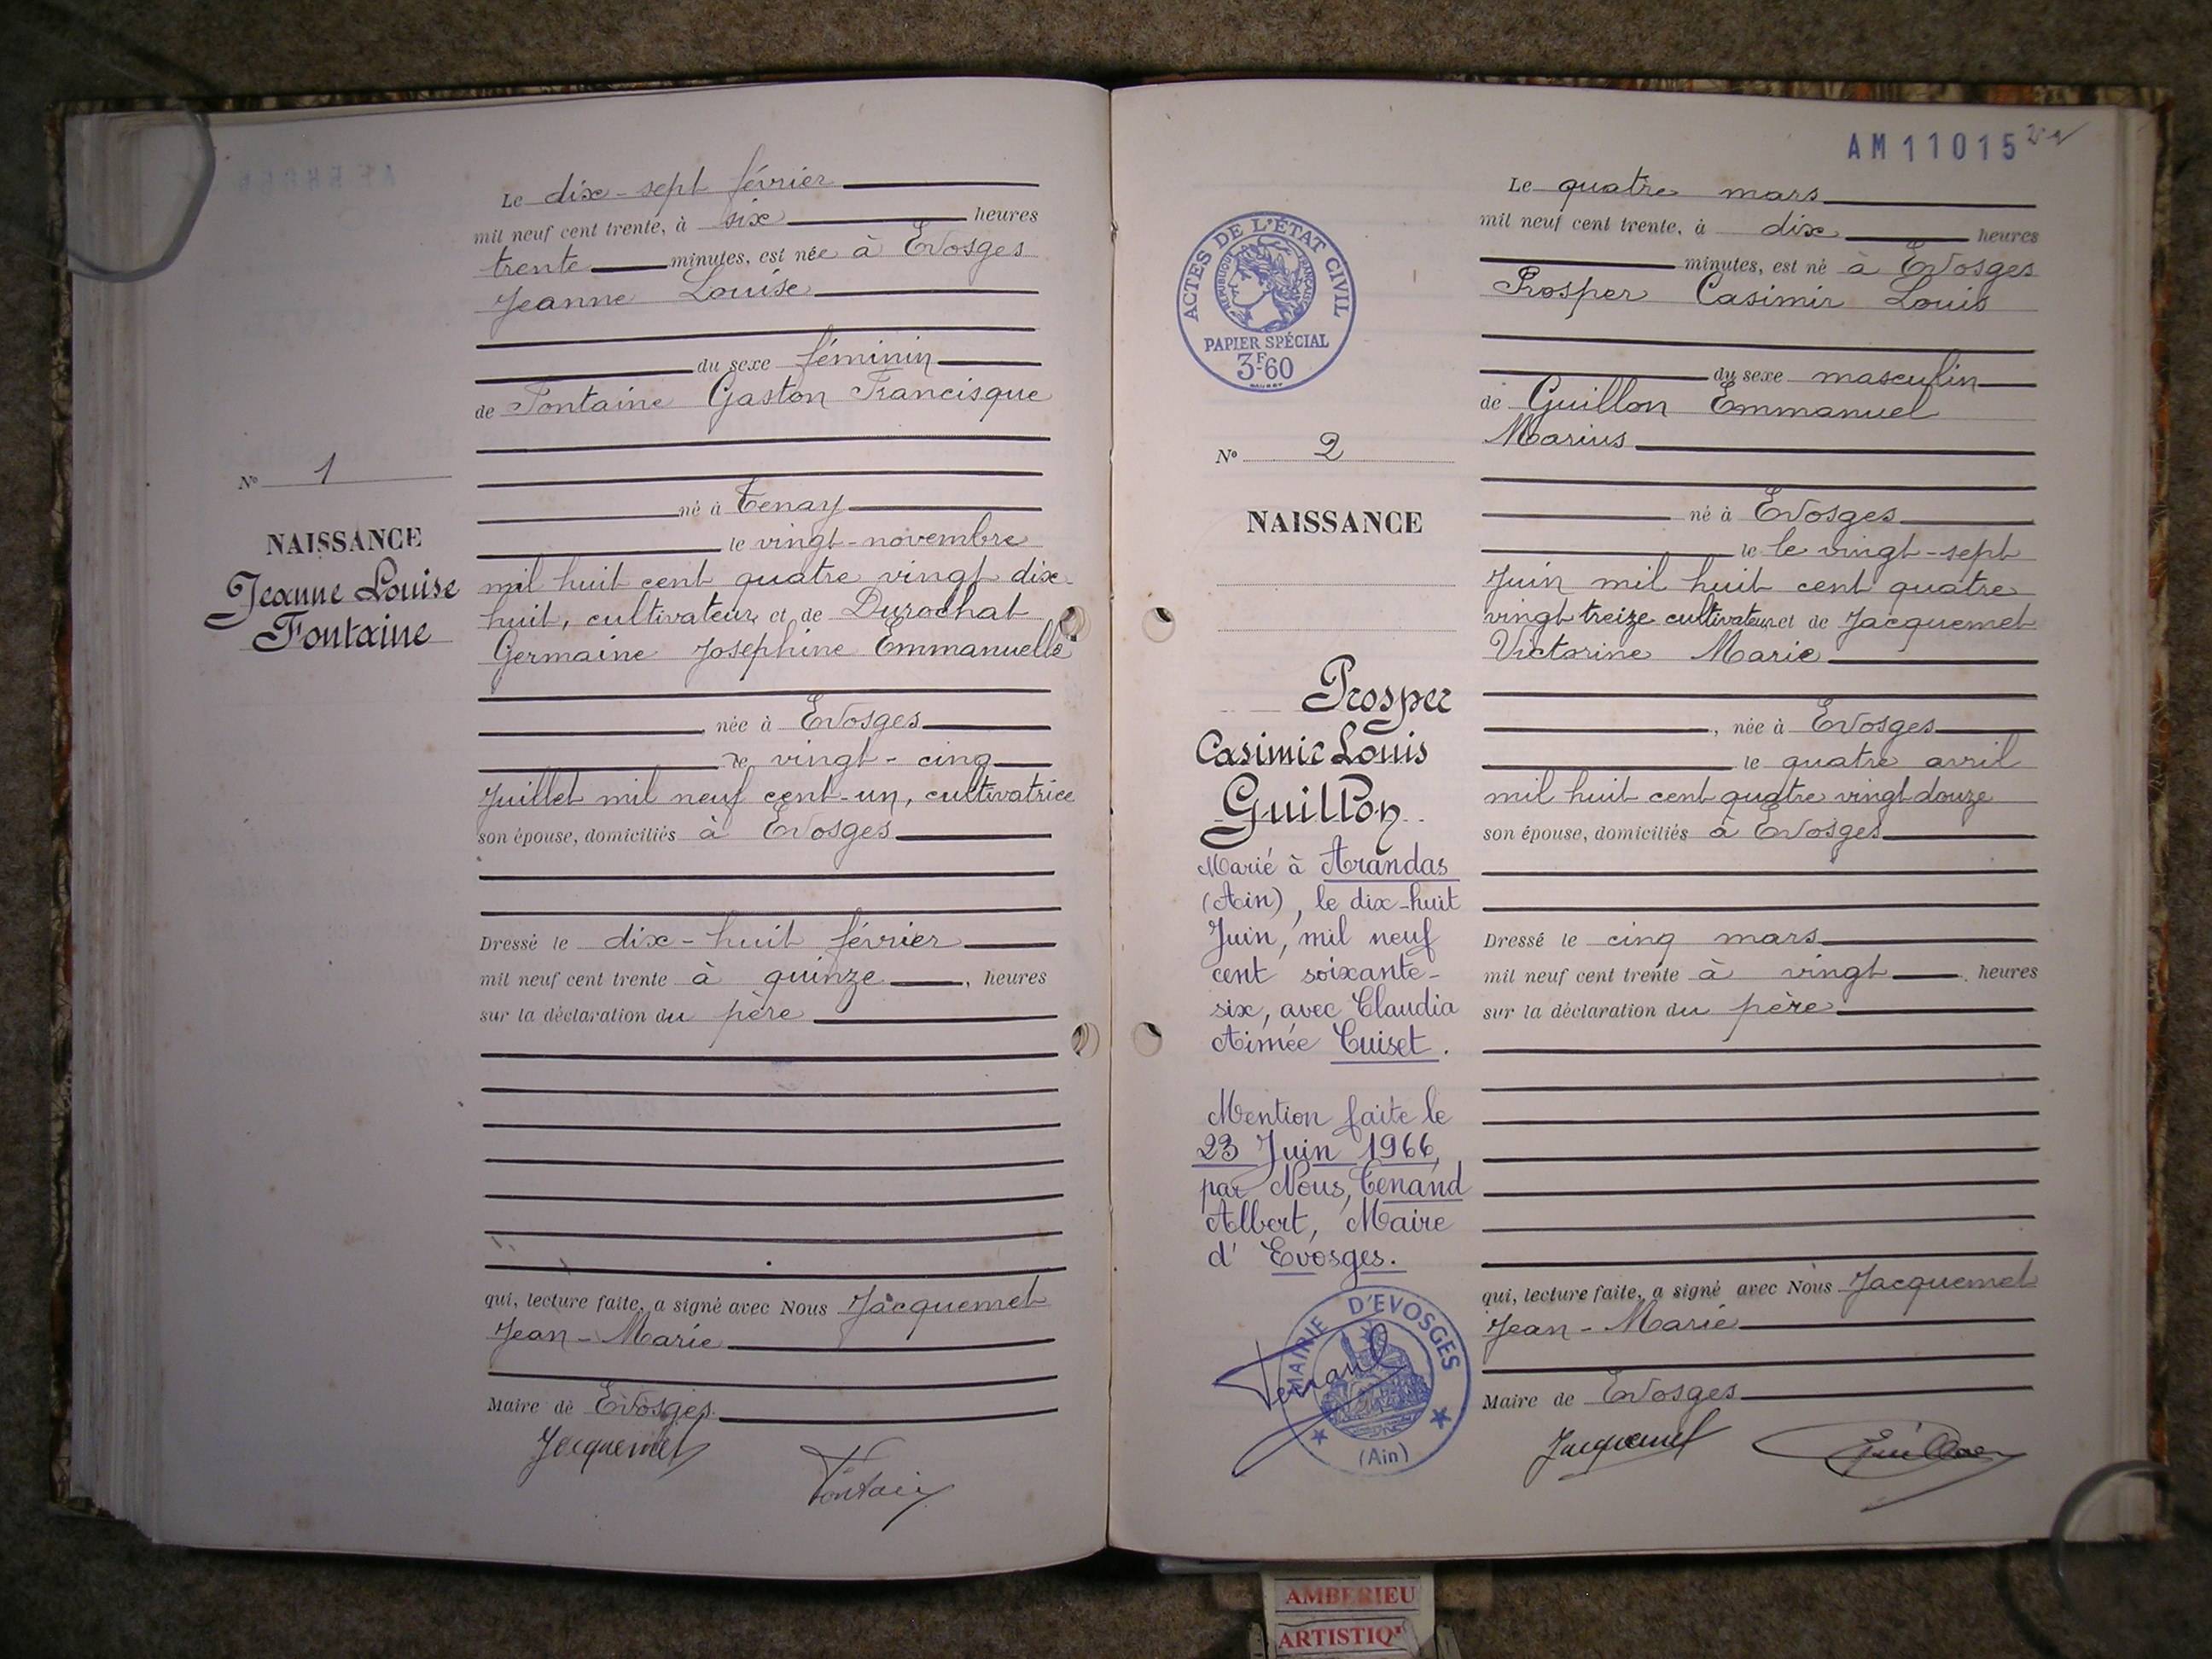 Le dix-sept février
mil neuf cent trente, à six heures
trente minutes, est née à Evosges
Jeanne Louise
du sexe féminin
de Fontaine Gaston Francisque
né à Tenay
le vingt-novembre
mil huit cent quatre vingt dix-
huit, cultivateur, et de Durochat
Germaine Joséphine Emmanuelle
née à Evosges
le vingt-cinq
Juillet mil neuf cent-un, cultivatrice
son épouse, domiciliés à Evosges
Dressé le dix-huit février
mil neuf cent trente à quinze, heures
sur la déclaration du père
qui, lecture faite, a signé avec Nous Jacquemet
Jean-Marie
Maire de Evosges
Jacquemet
Fontaine
N° 1
NAISSANCE
Jeanne Louise
Fontaine
AM11015
ACTES DE L'ÉTAT CIVIL
RÉPUBLIQUE FRANÇAISE
PAPIER SPÉCIAL
3F60
N° 2
NAISSANCE
Prosper
Casimir Louis
Guillon
Marié à Arandas
(Ain), le dix-huit
Juin, mil neuf
cent soixante-
six, avec Claudia
Aimée Cuiset.
Mention faite le
23 Juin 1966,
par Nous, Tenand
Albert, Maire
d'Evosges.
MAIRIE D'EVOSGES
(Ain)
Tenand
Le quatre mars
mil neuf cent trente, à dix heures
minutes, est né à Evosges
Prosper Casimir Louis
du sexe masculin
de Guillon Emmanuel
Marius
né à Evosges
le le vingt-sept
Juin mil huit cent quatre
vingt treize cultivateur et de Jacquemet
Victorine Marie
, née à Evosges
le quatre avril
mil huit cent quatre vingt douze
son épouse, domiciliés à Evosges
Dressé le cinq mars
mil neuf cent trente à vingt, heures
sur la déclaration du père
qui, lecture faite, a signé avec Nous Jacquemet
Jean-Marie
Maire de Evosges
Jacquemet
Guillon
AMBERIEU
ARTISTIQ